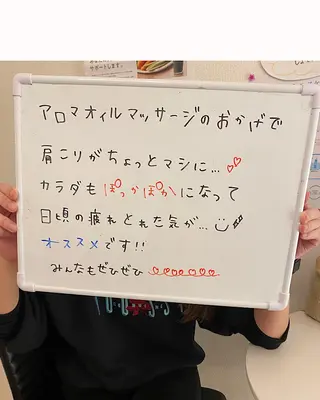 サポートします。
アロマオイルマッサージのおかげで
肩こりがちょっとマシに…
カラダもぽっかぽかになって
日頃の疲れとれた気が…
オススメです!!
みんなもぜひぜひ